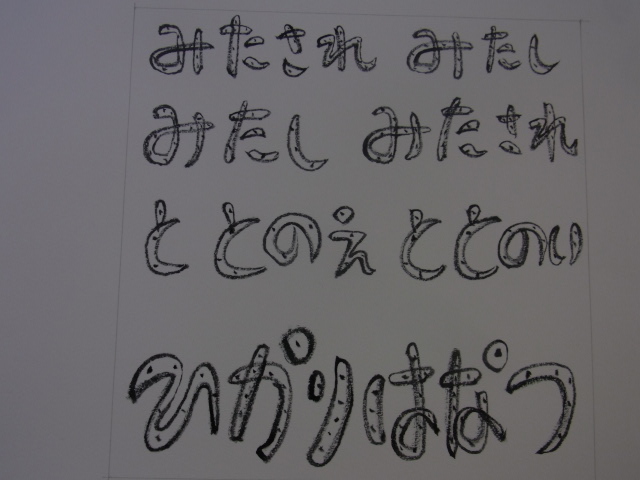 みたされ みたし
みたし みたされ
と とのえ ととのい
ひかりはなつ